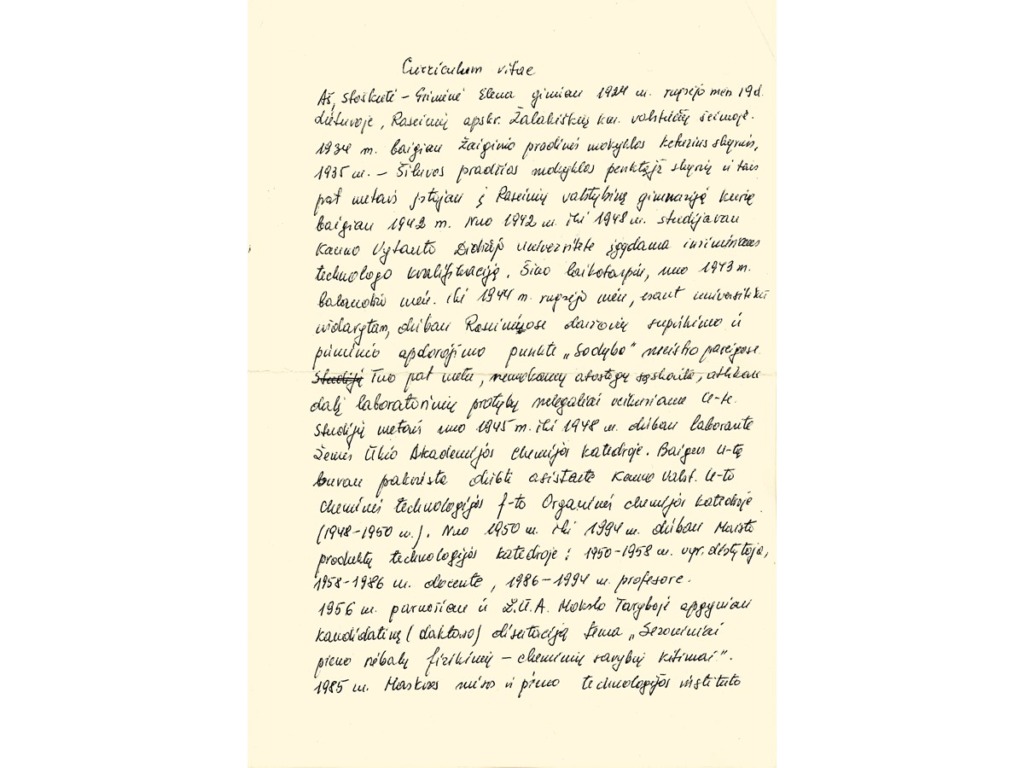 Curriculum vitae
Aš, Stoškutė-Grimienė Elena gimiau 1924 m. rugsėjo mėn 19 d.
Lietuvoje, Raseinių apskr. Žalakiškių km. valstiečių šeimoje.
1934 m. baigiau Žaiginio pradinės mokyklos keturius skyrius,
1935 m. – Šiluvos pradžios mokyklos penktąjį skyrių ir tais
pat metais įstojau į Raseinių valstybinę gimnaziją kurią
baigiau 1942 m. Nuo 1942 m. iki 1948 m. studijavau
Kauno Vytauto Didžiojo universitete įgydama inžinieriaus
technologo kvalifikaciją. Šiuo laikotarpiu, nuo 1943 m.
balandžio mėn. iki 1944 m. rugsėjo mėn, esant universitetui
uždarytam, dirbau Raseiniuose daržovių supirkimo ir
pirminio apdorojimo punkte „Sodyba" meistro pareigose.
Studijų Tuo pat metu, nemokamų atostogų sąskaita, atlikau
dalį laboratorinių pratybų nelegaliai veikusiame U-te.
Studijų metais nuo 1945 m. iki 1948 m. dirbau laborante
Žemės Ūkio Akademijos chemijos katedroje. Baigus U-tą
buvau pakviesta dirbti asistente Kauno Valst. U-to
cheminės technologijos f-to Organinės chemijos katedroje
(1948-1950 m.). Nuo 1950 m. iki 1994 m. dirbau Maisto
produktų technologijos katedroje: 1950-1958 m. vyr. dėstytoja,
1958-1986 m. docente, 1986-1994 m. profesore.
1956 m. paruošiau ir L.Ž.Ū.A. Mokslo Taryboje apgyniau
kandidatinę (daktaro) disertaciją tema „Sezoniniai
pieno riebalų fizikinių – cheminių savybių kitimai".
1985 m. Maskvos mėsos ir pieno technologijos instituto